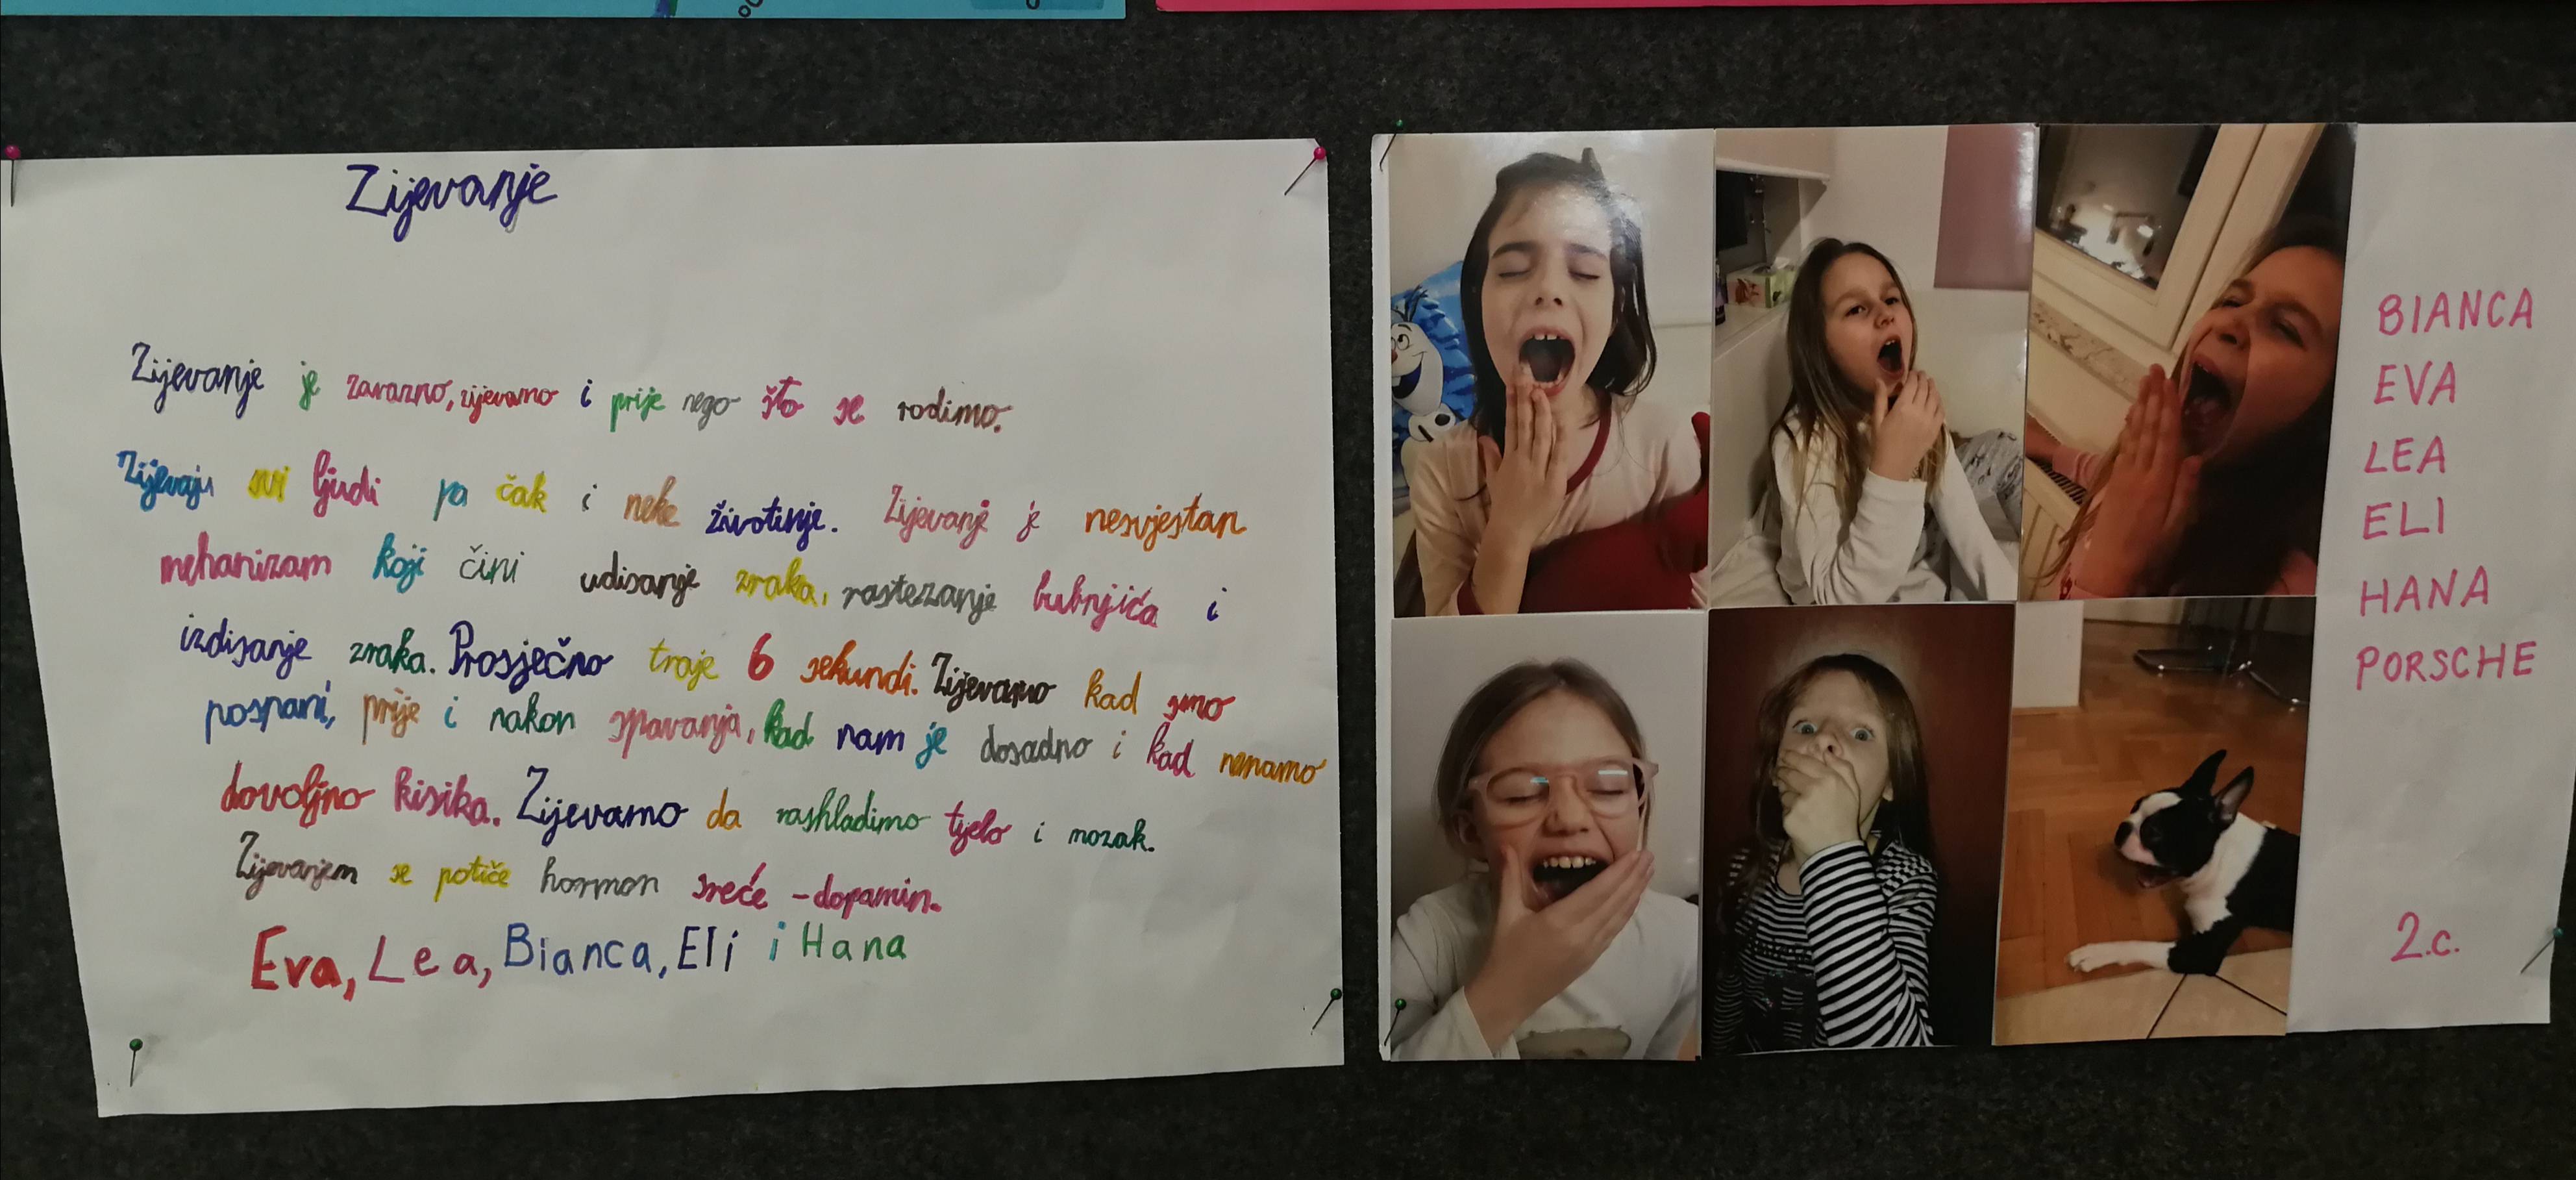 Zijevanje
Zijevanje je zarazno, zijevamo i prije nego što se rodimo.
Zijevaju svi ljudi pa čak i neke životinje. Zijevanje je nesvjestan
mehanizam koji čini udisanje zraka, rastezanje bubnjića i
izdisanje zraka. Prosječno traje 6 sekundi. Zijevamo kad smo
pospani, prije i nakon spavanja, kad nam je dosadno i kad nemamo
dovoljno kisika. Zijevamo da rashladimo tijelo i mozak.
Zijevanjem se potiče hormon sreće - dopamin.
Eva, Lea, Bianca, Eli i Hana
BIANCA
EVA
LEA
ELI
HANA
PORSCHE
2.c.